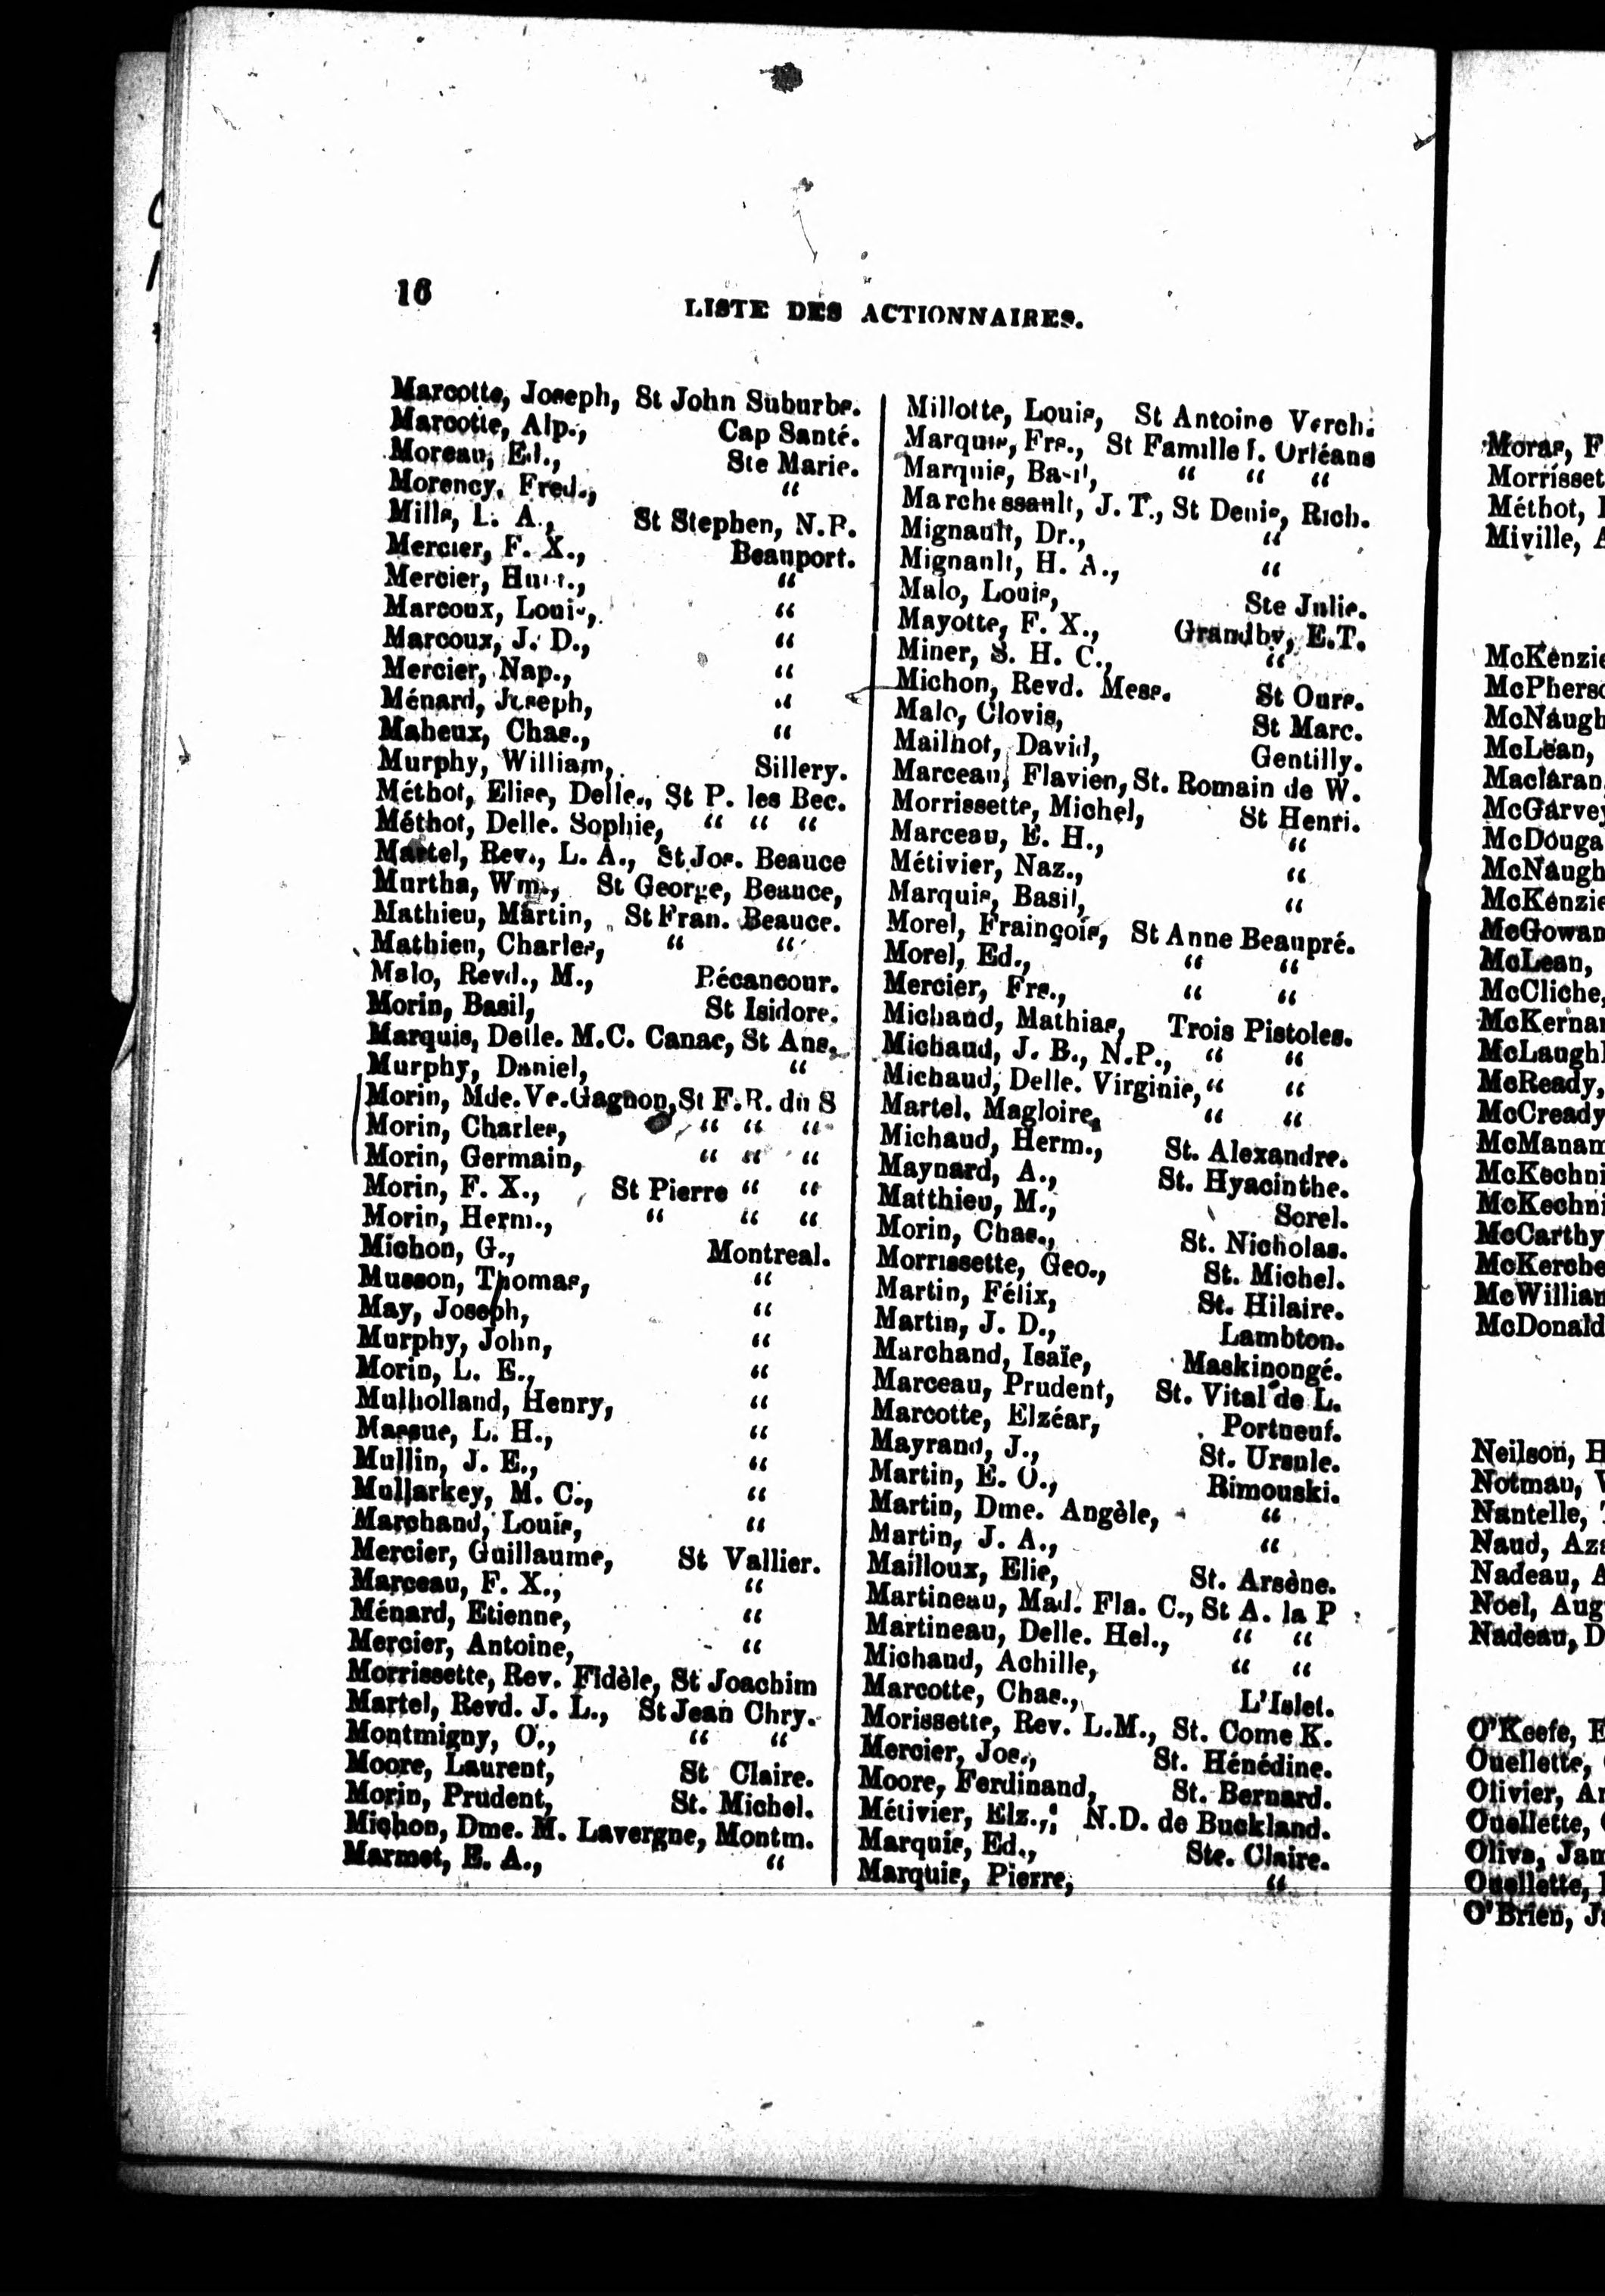 16
LISTE DES ACTIONNAIRES.
Marcotte, Joseph, St John Suburbs.
Marcotte, Alp., Cap Santé.
Moreau, Ed., Ste Marie.
Morency, Fred., "
Mills, L. A., St Stephen, N.P.
Mercier, F. X., Beauport.
Mercier, "
Marcoux, Louis, "
Marcoux, J. D., "
Mercier, Nap., "
Ménard, Joseph, "
Maheux, Chas., "
Murphy, William, Sillery.
Méthot, Elise, Delle., St P. les Bec.
Méthot, Delle. Sophie, " " "
Martel, Rev., L. A., St Jos. Beauce
Murtha, Wm., St George, Beauce,
Mathieu, Martin, St Fran. Beauce.
Mathieu, Charles, " "
Malo, Revd., M., Bécancour.
Morin, Basil, St Isidore.
Marquis, Delle. M.C. Canac, St Ans.
Murphy, Daniel, "
Morin, Mde. Ve. Gagnon, St F. R. du S
Morin, Charles, " " "
Morin, Germain, " " "
Morin, F. X., St Pierre " "
Morin, Herm., " " "
Michon, G., Montreal.
Musson, Thomas, "
May, Joseph, "
Murphy, John, "
Morin, L. E., "
Mulholland, Henry, "
Massue, L. H., "
Mullin, J. E., "
Mullarkey, M. C., "
Marchand, Louis, "
Mercier, Guillaume, St Vallier.
Marceau, F. X., "
Ménard, Etienne, "
Mercier, Antoine, "
Morrissette, Rev. Fidèle, St Joachim
Martel, Revd. J. L., St Jean Chry.
Montmigny, O., " "
Moore, Laurent, St Claire.
Morin, Prudent, St. Michel.
Michon, Dme. M. Lavergne, Montm.
Marmet, E. A., "
Millotte, Louis, St Antoine Verch.
Marquis, Frs., St Famille I. Orléans
Marquis, Basil, " " "
Marchessault, J. T., St Denis, Rich.
Mignault, Dr., "
Mignault, H. A., "
Malo, Louis, Ste Julie.
Mayotte, F. X., Grandby, E.T.
Miner, S. H. C., "
Michon, Revd. Mess. St Ours.
Malo, Clovis, St Marc.
Mailhot, David, Gentilly.
Marceau, Flavien, St. Romain de W.
Morrissette, Michel, St Henri.
Marceau, E. H., "
Métivier, Naz., "
Marquis, Basil, "
Morel, Frainçois, St Anne Beaupré.
Morel, Ed., " "
Mercier, Frs., " "
Michaud, Mathias, Trois Pistoles.
Michaud, J. B., N.P., " "
Michaud, Delle. Virginie, " "
Martel, Magloire, " "
Michaud, Herm., St. Alexandre.
Maynard, A., St. Hyacinthe.
Matthieu, M., Sorel.
Morin, Chas., St. Nicholas.
Morrissette, Geo., St. Michel.
Martin, Félix, St. Hilaire.
Martin, J. D., Lambton.
Marchand, Isaïe, Maskinongé.
Marceau, Prudent, St. Vital de L.
Marcotte, Elzéar, Portneuf.
Mayrand, J., St. Ursule.
Martin, E. O., Rimouski.
Martin, Dme. Angèle, "
Martin, J. A., "
Mailloux, Elie, St. Arsène.
Martineau, Mad. Fla. C., St A. la P
Martineau, Delle. Hel., " "
Michaud, Achille, " "
Marcotte, Chas., L'Islet.
Morissette, Rev. L.M., St. Come K.
Mercier, Jos., St. Hénédine.
Moore, Ferdinand, St. Bernard.
Métivier, Elz., N.D. de Buckland.
Marquis, Ed., Ste. Claire.
Marquis, Pierre, "
Moras, F
Morrisset
Méthot,
Miville, A
McKenzie
McPherso
McNaugh
McLean,
Maclaran,
McGarvey
McDouga
McNaugh
McKenzie
McGowan
McLean,
McCliche,
McKernan
McLaughl
McReady,
McCready
McManam
McKechni
McKechni
McCarthy
McKerche
McWilliam
McDonald
Neilson, H
Notman, W
Nantelle,
Naud, Aza
Nadeau, A
Noel, Aug
Nadeau, D
O'Keefe, E
Ouellette,
Olivier, An
Ouellette,
Oliva, Jam
Ouellette,
O'Brien, Ja